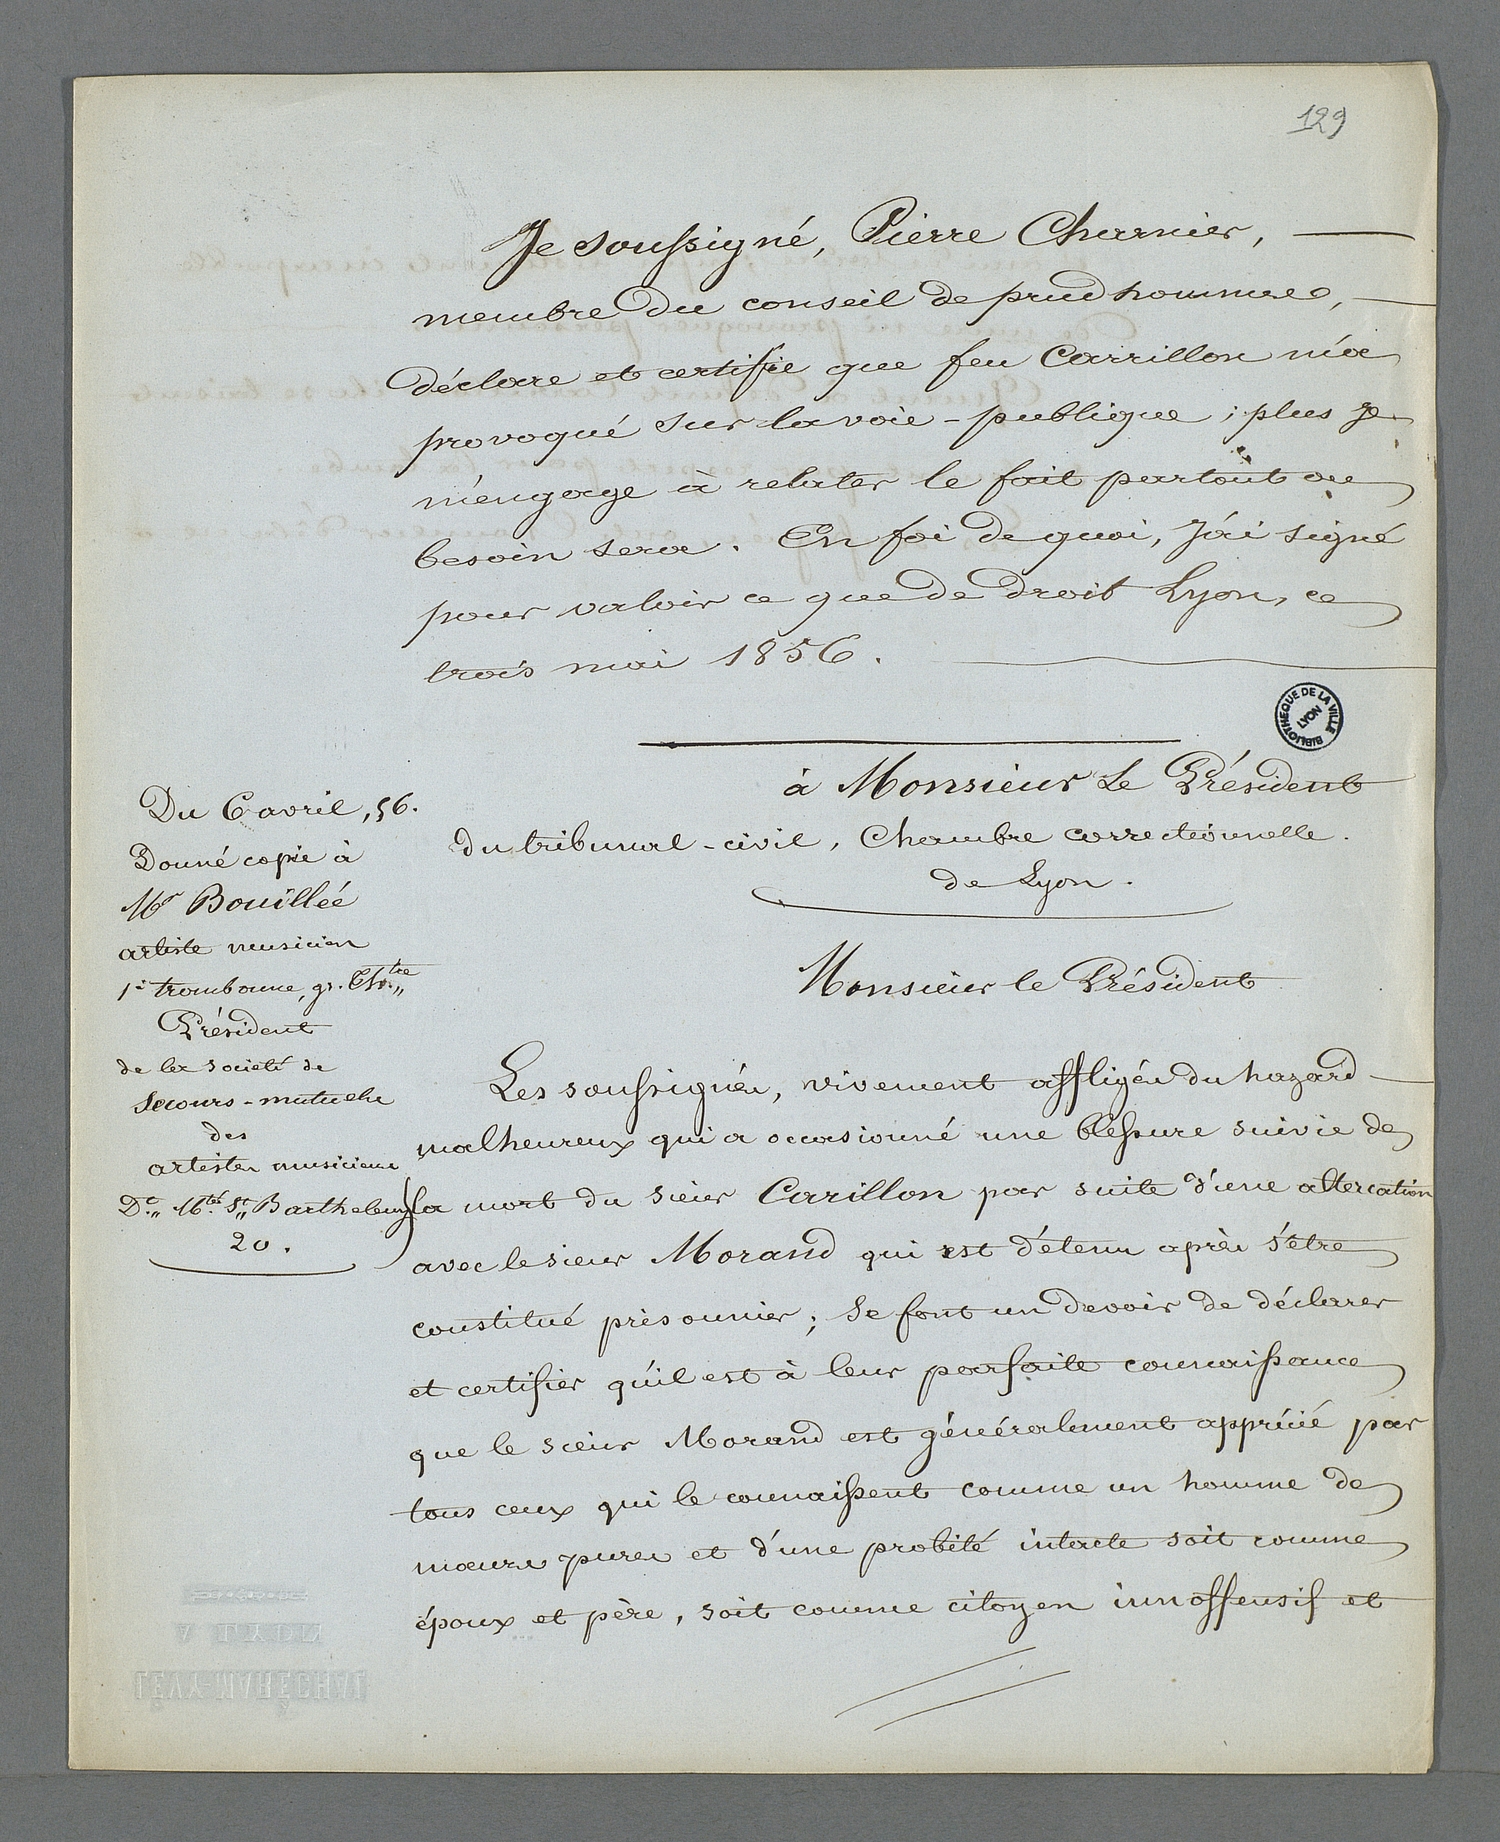 129
Je soussigné, Pierre Charnier,
membre du conseil de prudhommes,
déclare et certifie que feu Carrillon m'a
provoqué sur la voie-publique ; plus je
m'engage à relater le fait partout ou
besoin sera. En foi de quoi, j'ai signé
pour valoir ce que de droit Lyon, ce
trois mai 1856.
BIBLIOTHEQUE DE LA VILLE
LYON
à Monsieur Le Président
du tribunal-civil, Chambre correctionnelle.
de Lyon.
Du 6 avril, 56.
Donné copie à
Mr Bouillée
artiste musicien
1er trombonne, gr. Th.tre
Président
de la société de
Secours-mutuels
des
artistes musiciens
De. Mtée. St. Barthelemy
20.
Monsieur le Président
Les soussignés, vivement affligés du hazard
malheureux qui a occasionné une blessure suivie de
la mort du sieur Carillon par suite d'une altercation
avec le sieur Morand qui est détenu après s'être
constitué prisonnier ; se font un devoir de déclarer
et certifier qu'il est à leur parfaite connaissance
que le sieur Morand est généralement apprécié par
tous ceux qui le connaissent comme un homme de
mœurs pures et d'une probité intacte soit comme
époux et père, soit comme citoyen innoffensif et
LÉVY-MARÉCHAL
A LYON